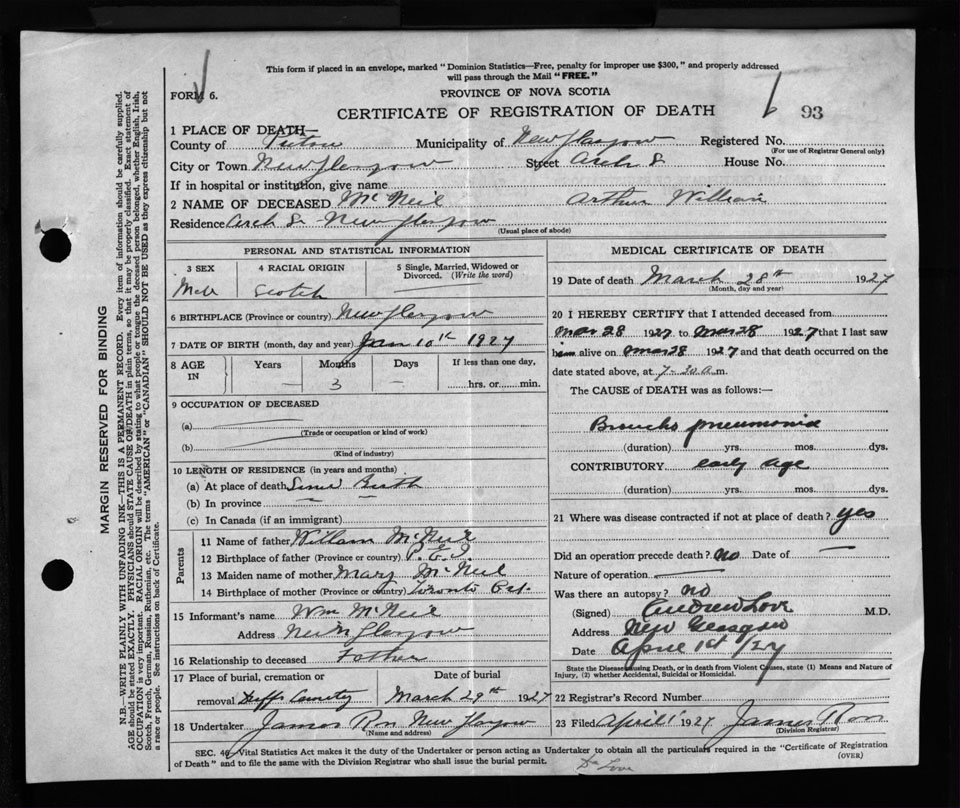 This form if placed in an envelope, marked "Dominion Statistics—Free, penalty for improper use $300," and properly addressed
will pass through the Mail "FREE."
FORM 6.
PROVINCE OF NOVA SCOTIA
CERTIFICATE OF REGISTRATION OF DEATH
93
1 PLACE OF DEATH—
County of Pictou Municipality of New Glasgow Registered No.
(For use of Registrar General only)
City or Town New Glasgow Street Arch St House No.
If in hospital or institution, give name
2 NAME OF DECEASED McNeil Arthur William
Residence Arch St New Glasgow
(Usual place of abode)
PERSONAL AND STATISTICAL INFORMATION
3 SEX 4 RACIAL ORIGIN 5 Single, Married, Widowed or Divorced. (Write the word)
Male Scotch
6 BIRTHPLACE (Province or country) New Glasgow
7 DATE OF BIRTH (month, day and year) Jan 10th 1927
8 AGE IN Years Months Days If less than one day,
— 3 — hrs. or min.
9 OCCUPATION OF DECEASED
(a)
(Trade or occupation or kind of work)
(b)
(Kind of industry)
10 LENGTH OF RESIDENCE (in years and months)
(a) At place of death Since Birth
(b) In province
(c) In Canada (if an immigrant)
Parents
11 Name of father William McNeil
12 Birthplace of father (Province or country) P.E.I.
13 Maiden name of mother Mary McNeil
14 Birthplace of mother (Province or Country) Toronto Ont.
15 Informant's name Wm McNeil
Address New Glasgow
16 Relationship to deceased Father
17 Place of burial, cremation or Date of burial
removal March 29th 1927
18 Undertaker James Ross New Glasgow
(Name and address)
MEDICAL CERTIFICATE OF DEATH
19 Date of death March 28th 1927
(Month, day and year)
20 I HEREBY CERTIFY that I attended deceased from
Mar 28 1927 to Mar 28 1927 that I last saw
him alive on Mar 28 1927 and that death occurred on the
date stated above, at 7-30 a.m.
The CAUSE of DEATH was as follows:—
Broncho pneumonia
(duration) yrs. mos. dys.
CONTRIBUTORY early age
(duration) yrs. mos. dys.
21 Where was disease contracted if not at place of death? yes
Did an operation precede death? no Date of —
Nature of operation —
Was there an autopsy? no
(Signed) Andrew Love M.D.
Address New Glasgow
Date April 1st /27
State the Disease causing Death, or in death from Violent Causes, state (1) Means and Nature of
Injury, (2) whether Accidental, Suicidal or Homicidal.
22 Registrar's Record Number
23 Filed April 1 1927 James Ross
(Division Registrar)
SEC. 40, Vital Statistics Act makes it the duty of the Undertaker or person acting as Undertaker to obtain all the particulars required in the "Certificate of Registration
of Death" and to file the same with the Division Registrar who shall issue the burial permit.
(OVER)
Dr Love
MARGIN RESERVED FOR BINDING
N.B.—WRITE PLAINLY WITH UNFADING INK—THIS IS A PERMANENT RECORD. Every item of information should be carefully supplied.
AGE should be stated EXACTLY. PHYSICIANS should STATE CAUSE OF DEATH in plain terms, so that it may be properly classified. Exact statement of
OCCUPATION is very important. RACIAL ORIGIN will be described by stating to what people or tongue the deceased person belonged, whether English, Irish,
Scotch, French, German, Russian, Ruthenian, etc. The terms "AMERICAN" or "CANADIAN" SHOULD NOT BE USED as they express citizenship but not
a race or people. See instructions on back of Certificate.